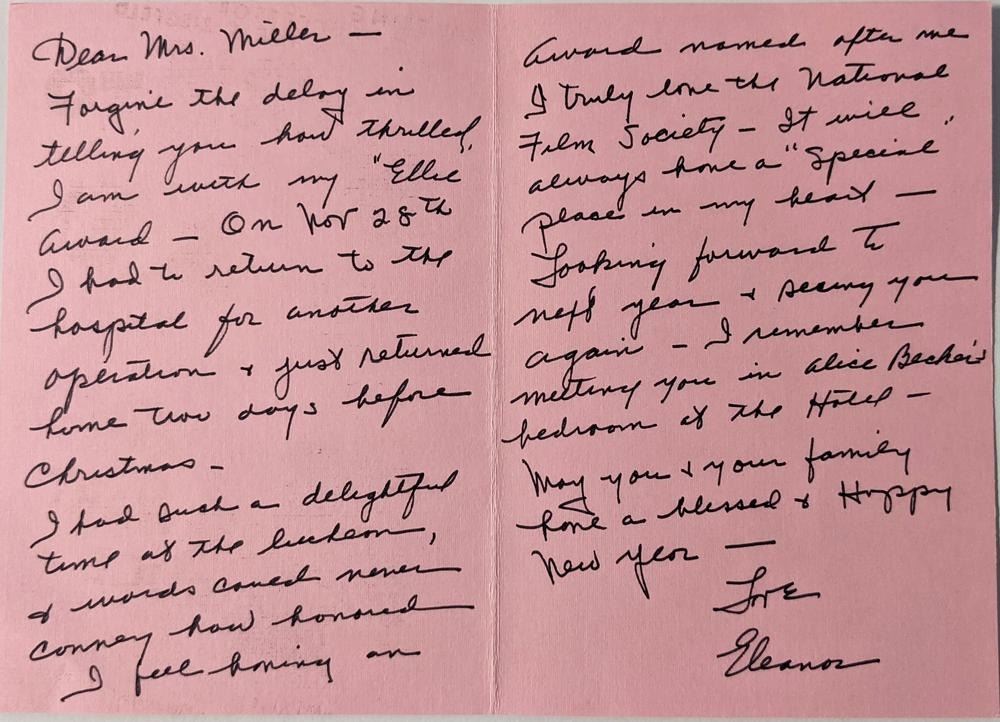 Dear Mrs. Miller —
Forgive the delay in
telling you how thrilled,
I am with my "Ellie
Award — On Nov 28th
I had to return to the
hospital for another
operation & just returned
home two days before
Christmas —
I had such a delightful
time at the lucheon,
& words coued never
convey how honored
I feel having an
Award named after me
I truly love the National
Film Society — It will
always have a "Special"
place in my heart —
Looking forward to
next year & seeing you
again — I remember
meeting you in Alice Becker's
bedroom at the Hotel —
May you & your family
have a blessed & Happy
New Year —
Love
Eleanor